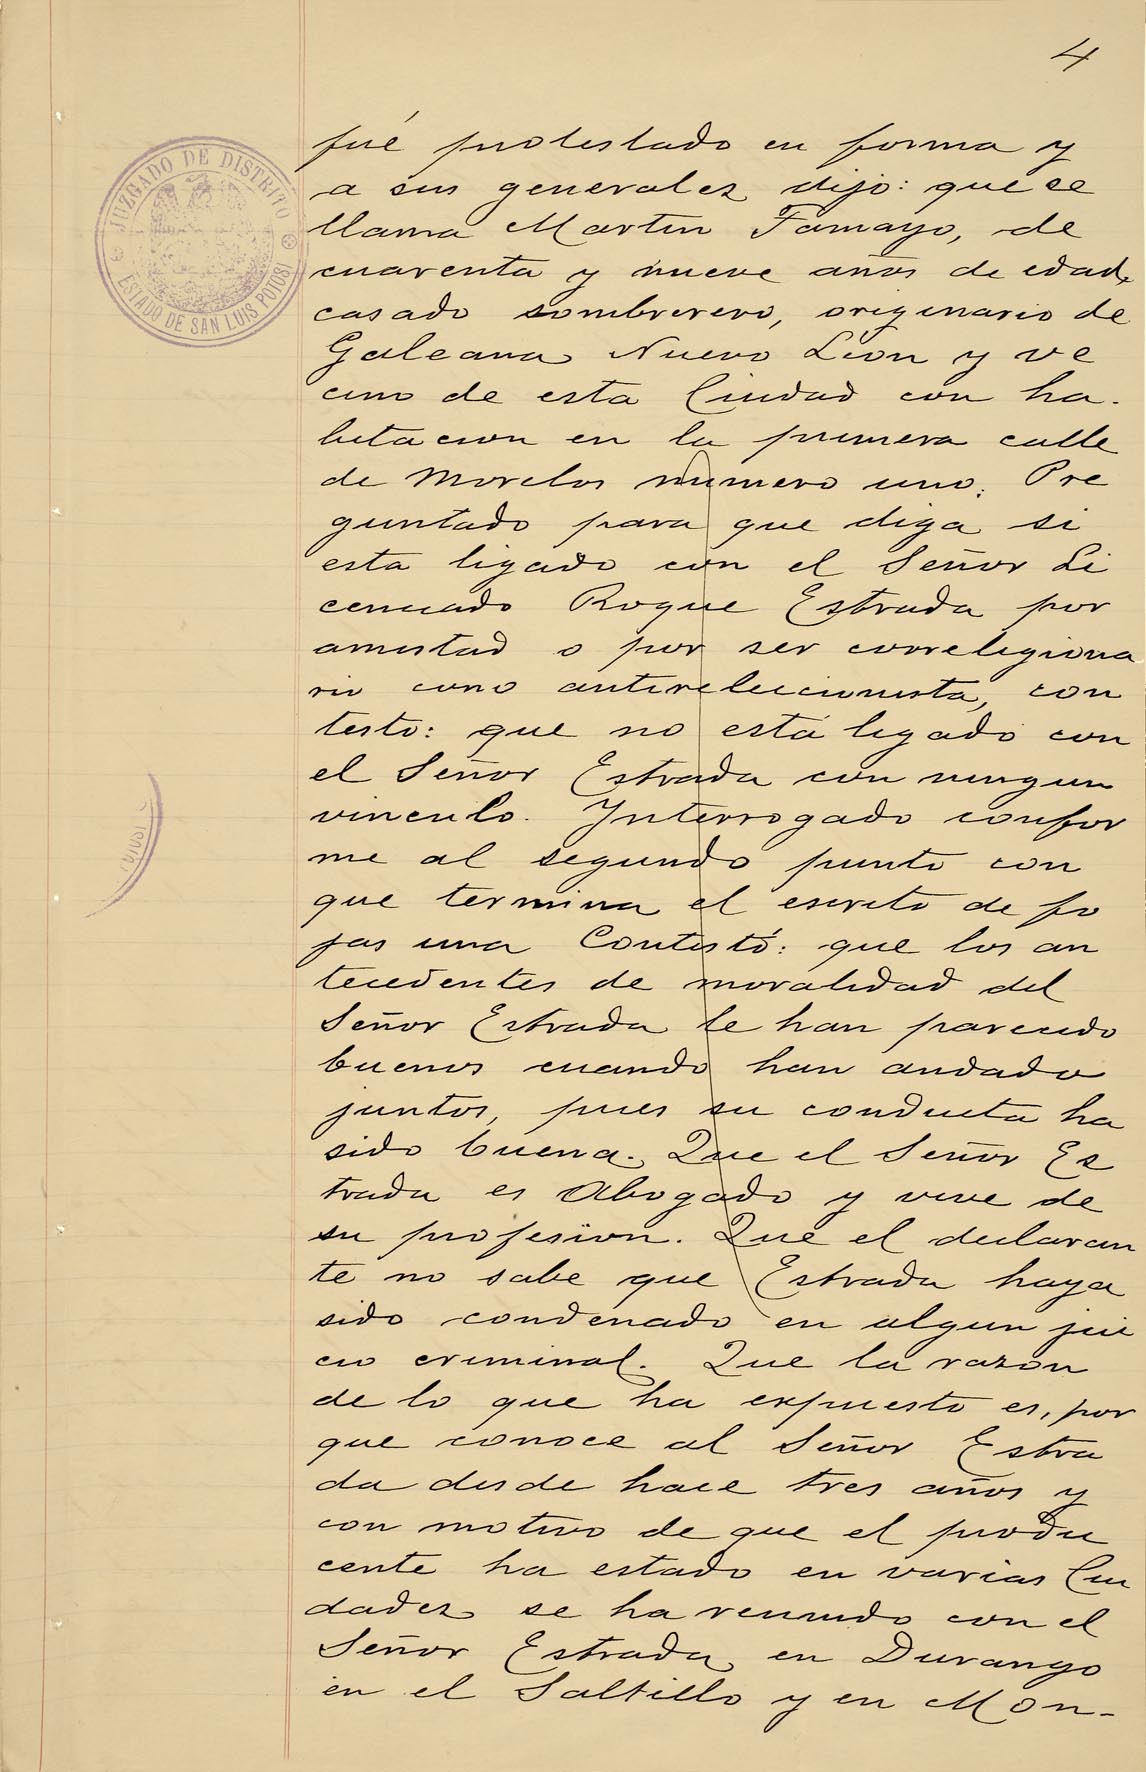 4
JUZGADO DE DISTRITO
ESTADO DE SAN LUIS POTOSI
fué protestado en forma y
a sus generales dijo: que se
llama Martin Tamayo, de
cuarenta y nueve años de edad,
casado sombrerero, originario de
Galeana Nuevo León y ve
cino de esta Ciudad con ha-
bitacion en la primera calle
de Morelos numero uno. Pre
guntado para que diga si
esta ligado con el Señor Li
cenciado Roque Estrada por
amistad o por ser correligiona
rio como antireleccionista, con
testo: que no está ligado con
el Señor Estrada con ningun
vinculo. Interrogado confor
me al segundo punto con
que termina el escrito de fo
jas una Contestó: que los an
tecedentes de moralidad del
Señor Estrada le han parecido
buenos cuando han andado
juntos, pues su conducta ha
sido buena. Que el Señor Es
trada es Abogado y vive de
su profesion. Que el declaran
te no sabe que Estrada haya
sido condenado en algun jui
cio criminal. Que la razon
de lo que ha expuesto es, por
que conoce al Señor Estra
da desde hace tres años y
con motivo de que el produ
cente ha estado en varias Ciu
dades se ha reunido con el
Señor Estrada en Durango
en el Saltillo y en Mon-